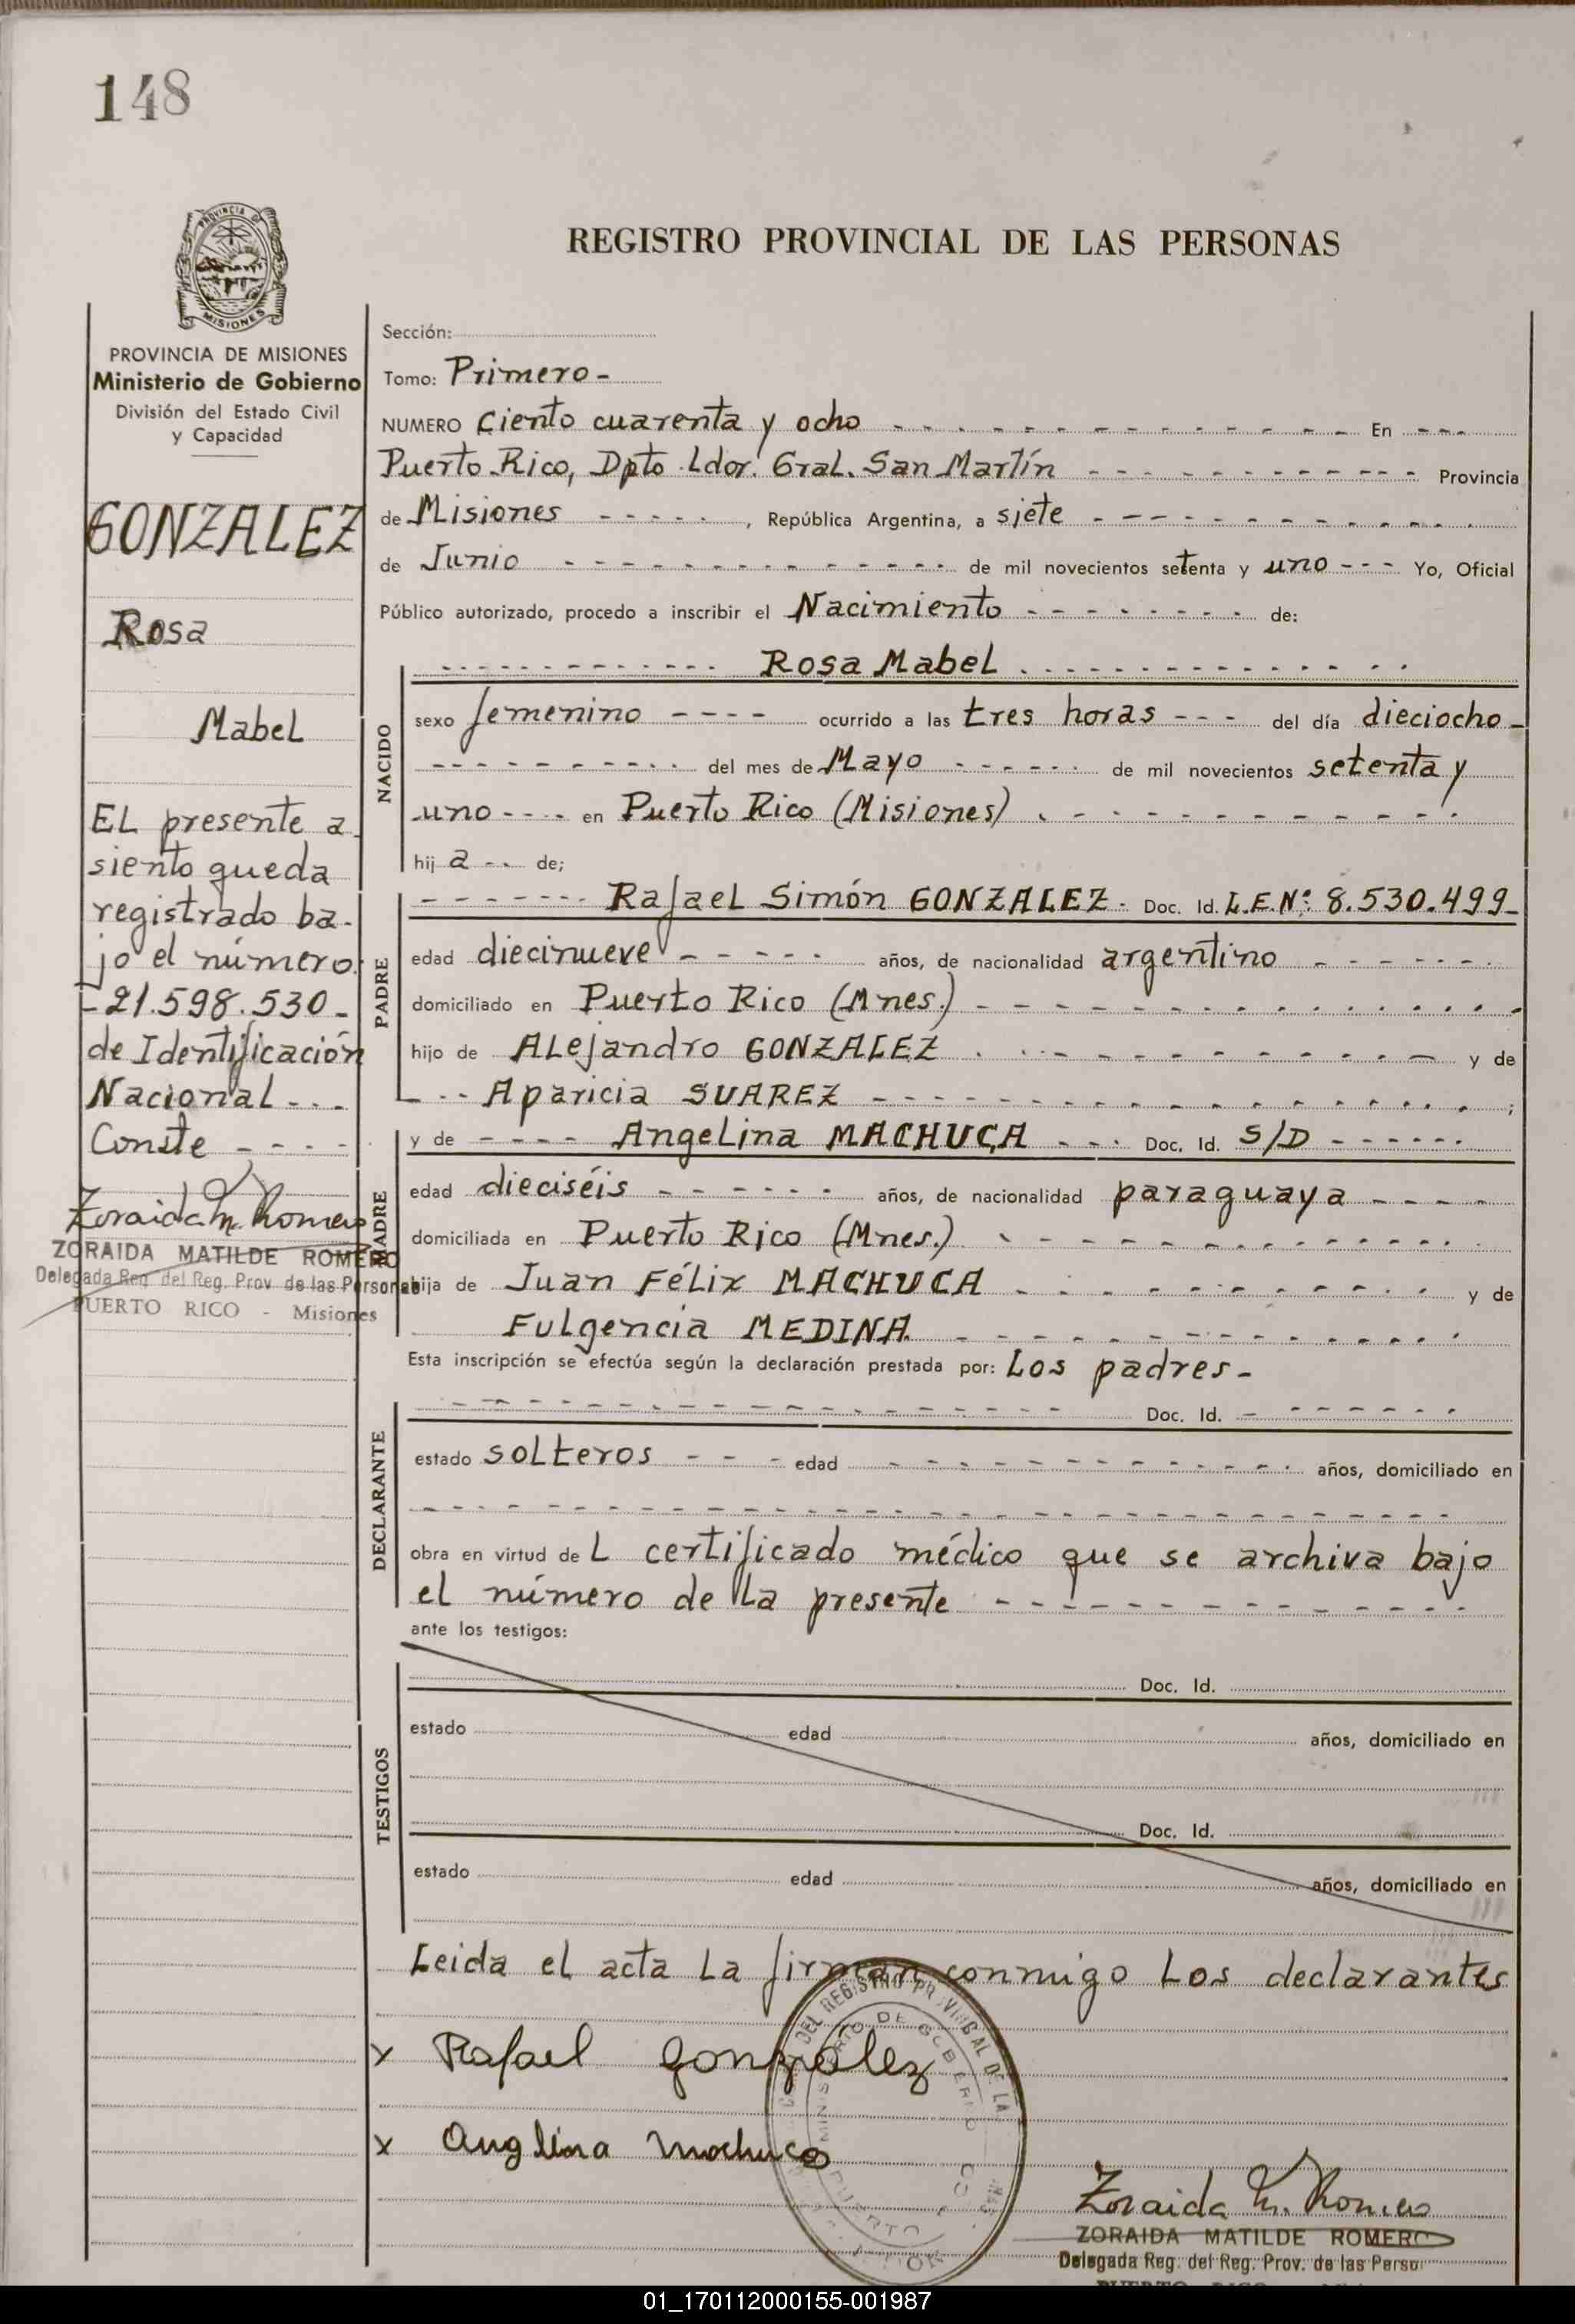 148
PROVINCIA DE
MISIONES
REGISTRO PROVINCIAL DE LAS PERSONAS
PROVINCIA DE MISIONES
Ministerio de Gobierno
División del Estado Civil
y Capacidad
GONZALEZ
Rosa
Mabel
EL presente a
siento queda
registrado ba-
jo el número
-21.598.530-
de Identificación
Nacional---
Conste ----
Zoraida M. Romero
ZORAIDA MATILDE ROMERO
Delegada Reg. del Reg. Prov. de las Personas
PUERTO RICO - Misiones
Sección:
Tomo: Primero-
NUMERO Ciento cuarenta y ocho - - - En ---
Puerto Rico, Dpto Ldor. Gral. San Martín - - - Provincia
de Misiones -----, República Argentina, a siete - - -
de Junio - - - de mil novecientos setenta y uno --- Yo, Oficial
Público autorizado, procedo a inscribir el Nacimiento - - - de:
NACIDO
- - - Rosa Mabel - - -
sexo femenino ---- ocurrido a las tres horas --- del día dieciocho-
- - - del mes de Mayo - - - de mil novecientos setenta y
uno ---- en Puerto Rico (Misiones) - - -
hij a -- de;
PADRE
- - - Rafael Simón GONZALEZ- Doc. Id. L.E.Nº: 8.530.499-
edad diecinueve - - - años, de nacionalidad argentino - - -
domiciliado en Puerto Rico (Mnes.) - - -
hijo de ALejandro GONZALEZ - - - y de
--- Aparicia SUAREZ - - - ;
MADRE
y de ---- AngeLina MACHUCA --- Doc. Id. S/D ------
edad dieciséis - - - años, de nacionalidad paraguaya ----
domiciliada en Puerto Rico (Mnes.) - - -
hija de Juan FéLix MACHUCA - - - y de
FuLgencia MEDINA - - -
Esta inscripción se efectúa según la declaración prestada por: Los padres-
DECLARANTE
- - - Doc. Id. - - -
estado soLteros - - - edad - - - años, domiciliado en
- - -
obra en virtud de L certificado médico que se archiva bajo
el número de La presente - - -
ante los testigos:
TESTIGOS
Doc. Id.
estado edad años, domiciliado en
Doc. Id.
estado edad años, domiciliado en
Leida el acta La firman conmigo Los declarantes
x Rafael González
x Anglina Machuca
DEL REGISTRO PROVINCIAL DE LA
MINISTERIO DE GOBIERNO
PUERTO
Zoraida M. Romero
ZORAIDA MATILDE ROMERO
Delegada Reg. del Reg. Prov. de las Perso
01_170112000155-001987